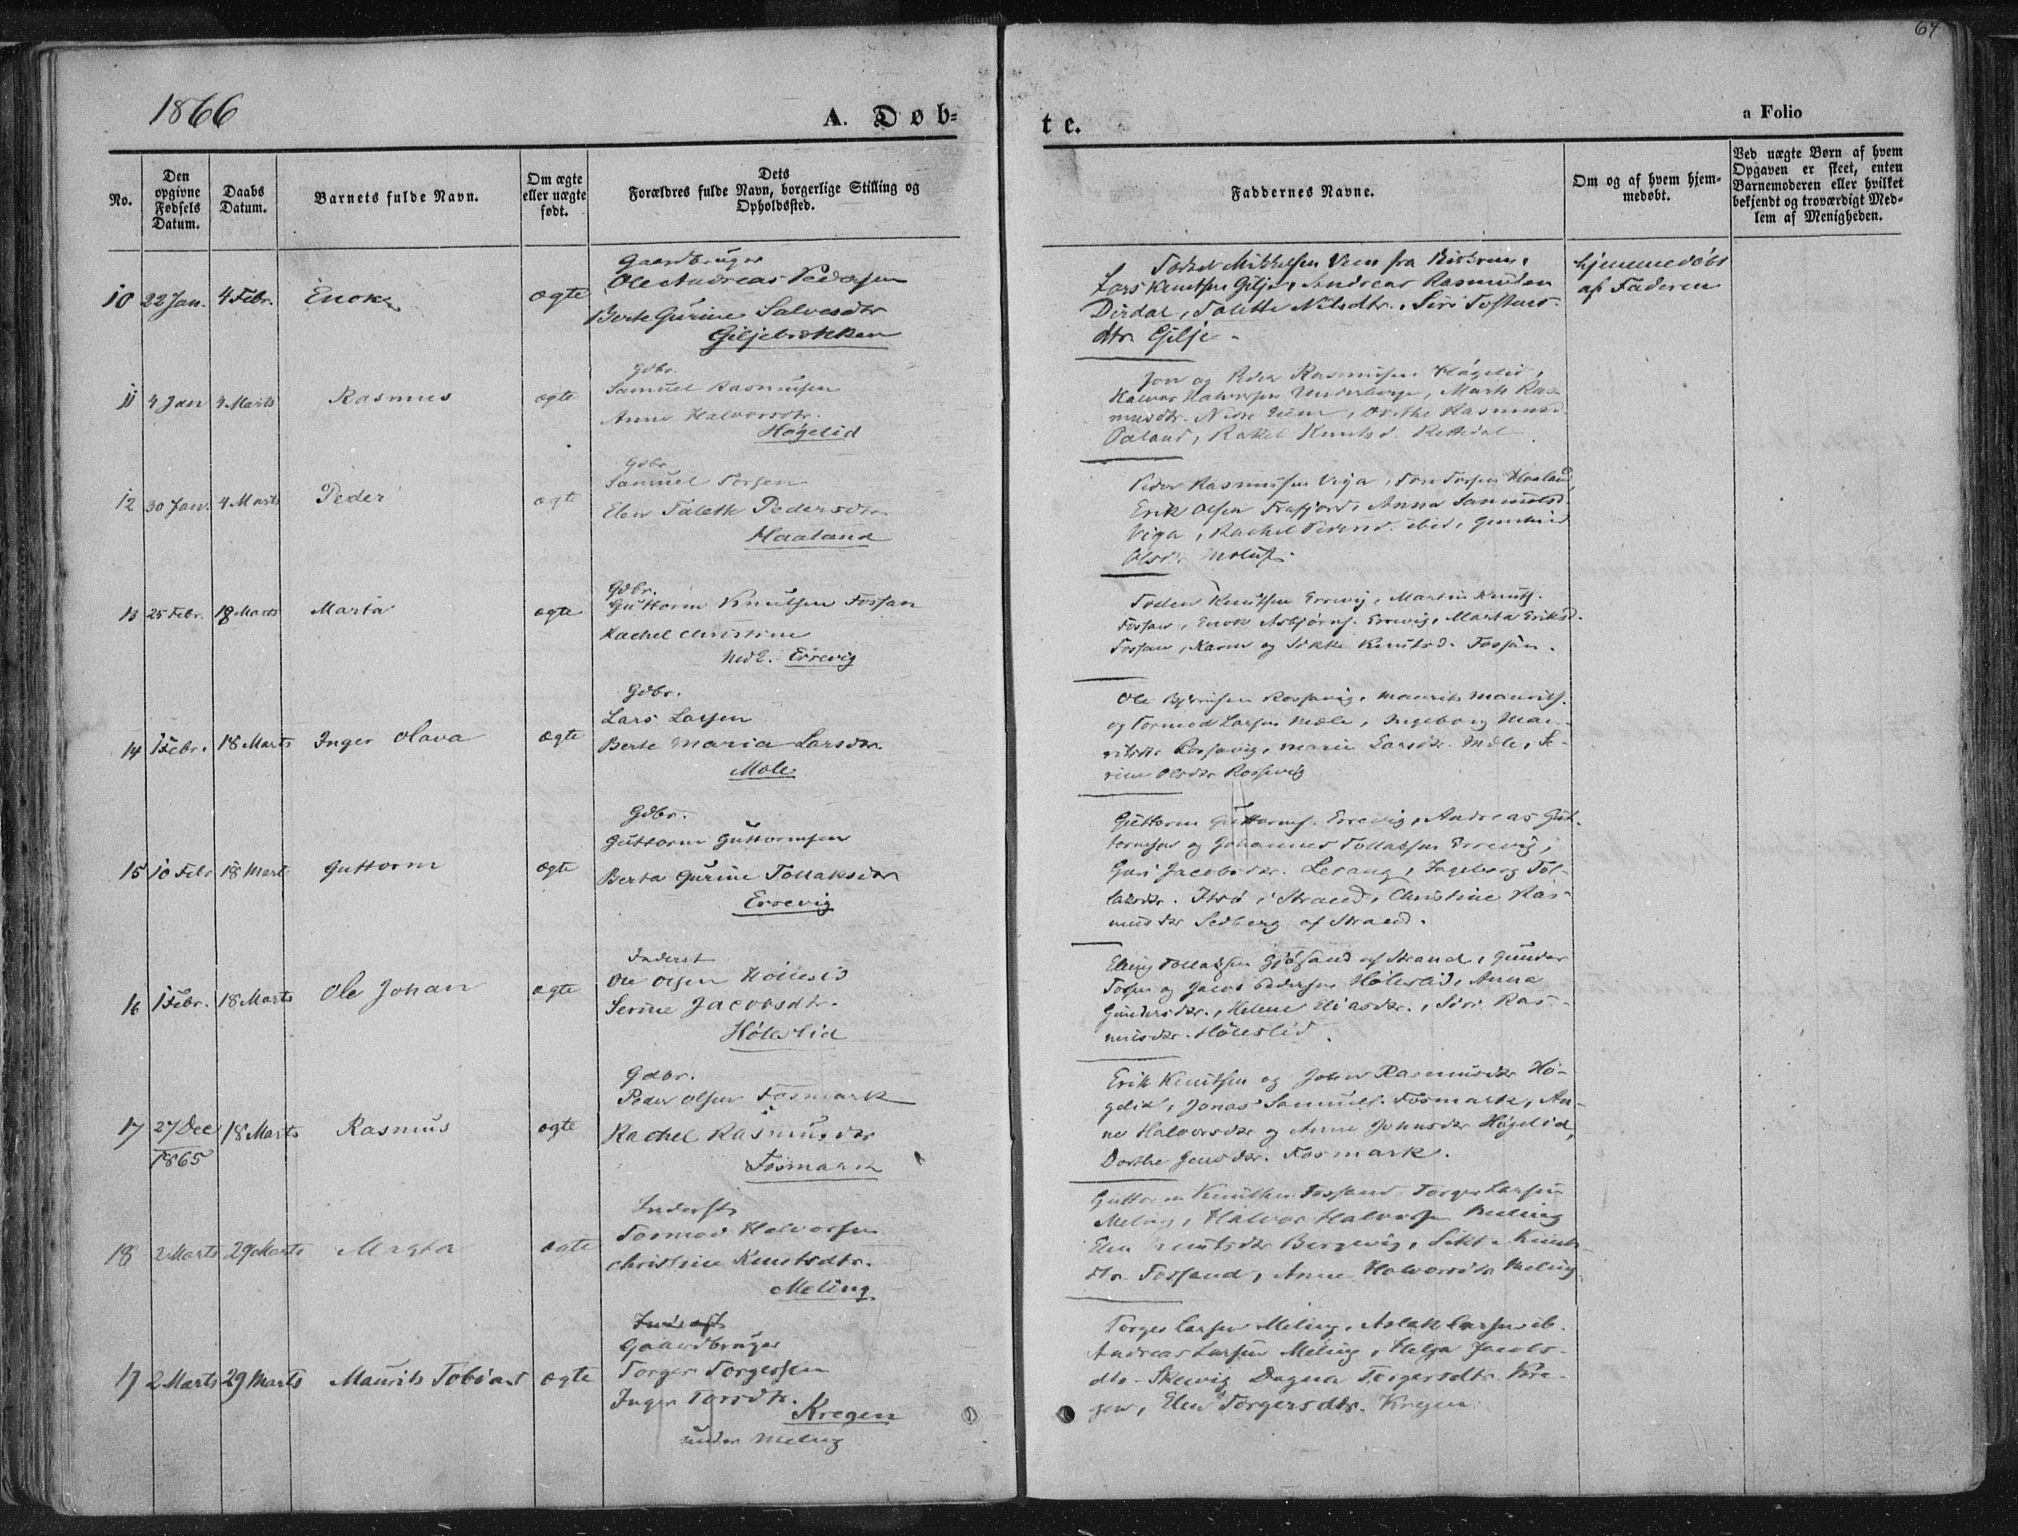 67
1866
A. Døb-
te.
a Folio
No.
Den opgivne Fødsels Datum.
Daabs Datum.
Barnets fulde Navn.
Om ægte eller uægte født.
Dets Forældres fulde Navn, borgerlige Stilling og Opholdssted.
Faddernes Navne.
Om og af hvem hjemmedøbt.
Ved uægte Børn af hvem Opgaven er skeet, enten Barnemoderen eller hvilket bekjendt og troværdigt Medlem af Menigheden.
10 22 Jan. 4 Febr. Enok ægte
Gaardbruger
Ole Andreas Pedersen
Berte Gurine Salvesdtr
Giljebrækken
Mikkelsen Veen fra
Lars Knutsen Gilje, Andreas Rasmusen
Dirdal, Talette Nilsdtr., Siri Tostens-
dtr Gilje.
hjemmedøbt
af Faderen
11 4 Jan 4 Marts Rasmus ægte
Gdbr.
Samuel Rasmusen
Anne Halvorsdtr.
Høgelid
Jon og Peder Rasmusen Høgelid,
Halvor Halvorsen Underberge, Marte Ras-
musdtr. Nedre , Rasmusd
Aaland, Rakel Knutsd. Rettedal.
12 30 Jan. 4 Marts Peder ægte
Gdbr
Samuel Torsen
Elen Taleth Pedersdtr
Haaland
Peder Rasmusen Viga, Tore Torsen Haaland,
Erik Olsen Frafjord, Anna Samuelsd.
Viga, Rachel Pedersd. ibid, Gunhild
Olsdtr
13 25 Febr. 18 Marts Marta ægte
Gdbr.
Guttorm Knutsen Fossan
Rachel Christine
Erevig
Knutsen Errevig, Martin Knuts.
Fossan, Enok Asbjørns. Errevig, Marta Eriksd.
Fossan, Karen og Sikke Knutsd. Fossan.
14 1 Febr. 18 Marts Inger Olava ægte
Gdbr.
Lars Larsen
Berte Maria Larsdtr.
Mole
Ole Bjørnsen Rossavig, Maurits Maurits.
og Tormod Larsen Mæle, Ingeborg Mau-
ritsdtr Rossavig, Marie Larsdtr. Mæle, Se-
rine Olsdtr Rossevig
15 10 Febr 18 Mart Guttorm ægte
Gdbr.
Guttorm Guttormsen
Berta Gurine Tollaksdtr
Errevig
Guttorm Guttorms. Errevig, Andreas Gut-
tormsen og Johannes Tollaksen Errevig,
Guri Jacobsdtr. Lerang, Ingeborg Tol-
laksdtr. i Strand, Christine Ras-
musdtr Sedberg af Strand.
16 1 Febr. 18 Marts Ole Johan ægte
Inderst
Ole Olsen Hölleslid
Serine Jacobsdtr.
Höleslid
Elling Tollaksen af Strand, Gunder
Torsen og Jacob Pedersen Höleslid, Anna
Gundersdtr., Helene Eliasdtr., Siri Ras-
musdtr. Höleslid.
17 27 Dec 1865 18 Marts Rasmus ægte
Gdbr.
Peder Olsen Fosmark
Rachel Rasmusdtr
Fosmark
Erik Knutsen og John Rasmusdtr Hö-
gelid, Jonas Samuels. Fosmark, An-
ne Halvorsdtr og Anne Johnsdtr Högelid,
Dorthe Jensdtr. Fosmark.
18 2 Marts 29 Marts Marta ægte
Inderst
Tormod Halvorsen
Christine Knutsdtr.
Meling
Guttorm Knutsen Fossand, Torger Larsen
Meling, Halvor Halvorsen Meling
Elen Knutsdtr Bergevig, Sikke Knuts-
dtr Fossand, Anne Halvorsdtr Meling
19 2 Marts 29 Marts Maurits Tobias ægte
Inderst
Gaardbruger
Torger Torgersen
Inger Torsdtr.
Kregen
under Meling
Torger Larsen Meling, Aslak Larsen ib.
Andreas Larsen Meling, Helga Jacobs-
dtr. Skevig Dagna Torgersdtr. Kre-
gen, Elen Torgersdtr. Kregen